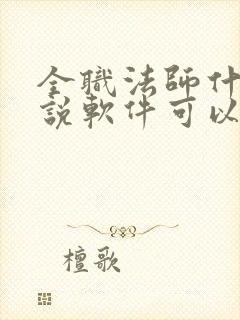 全職法師什
説軟件可以
檀歌